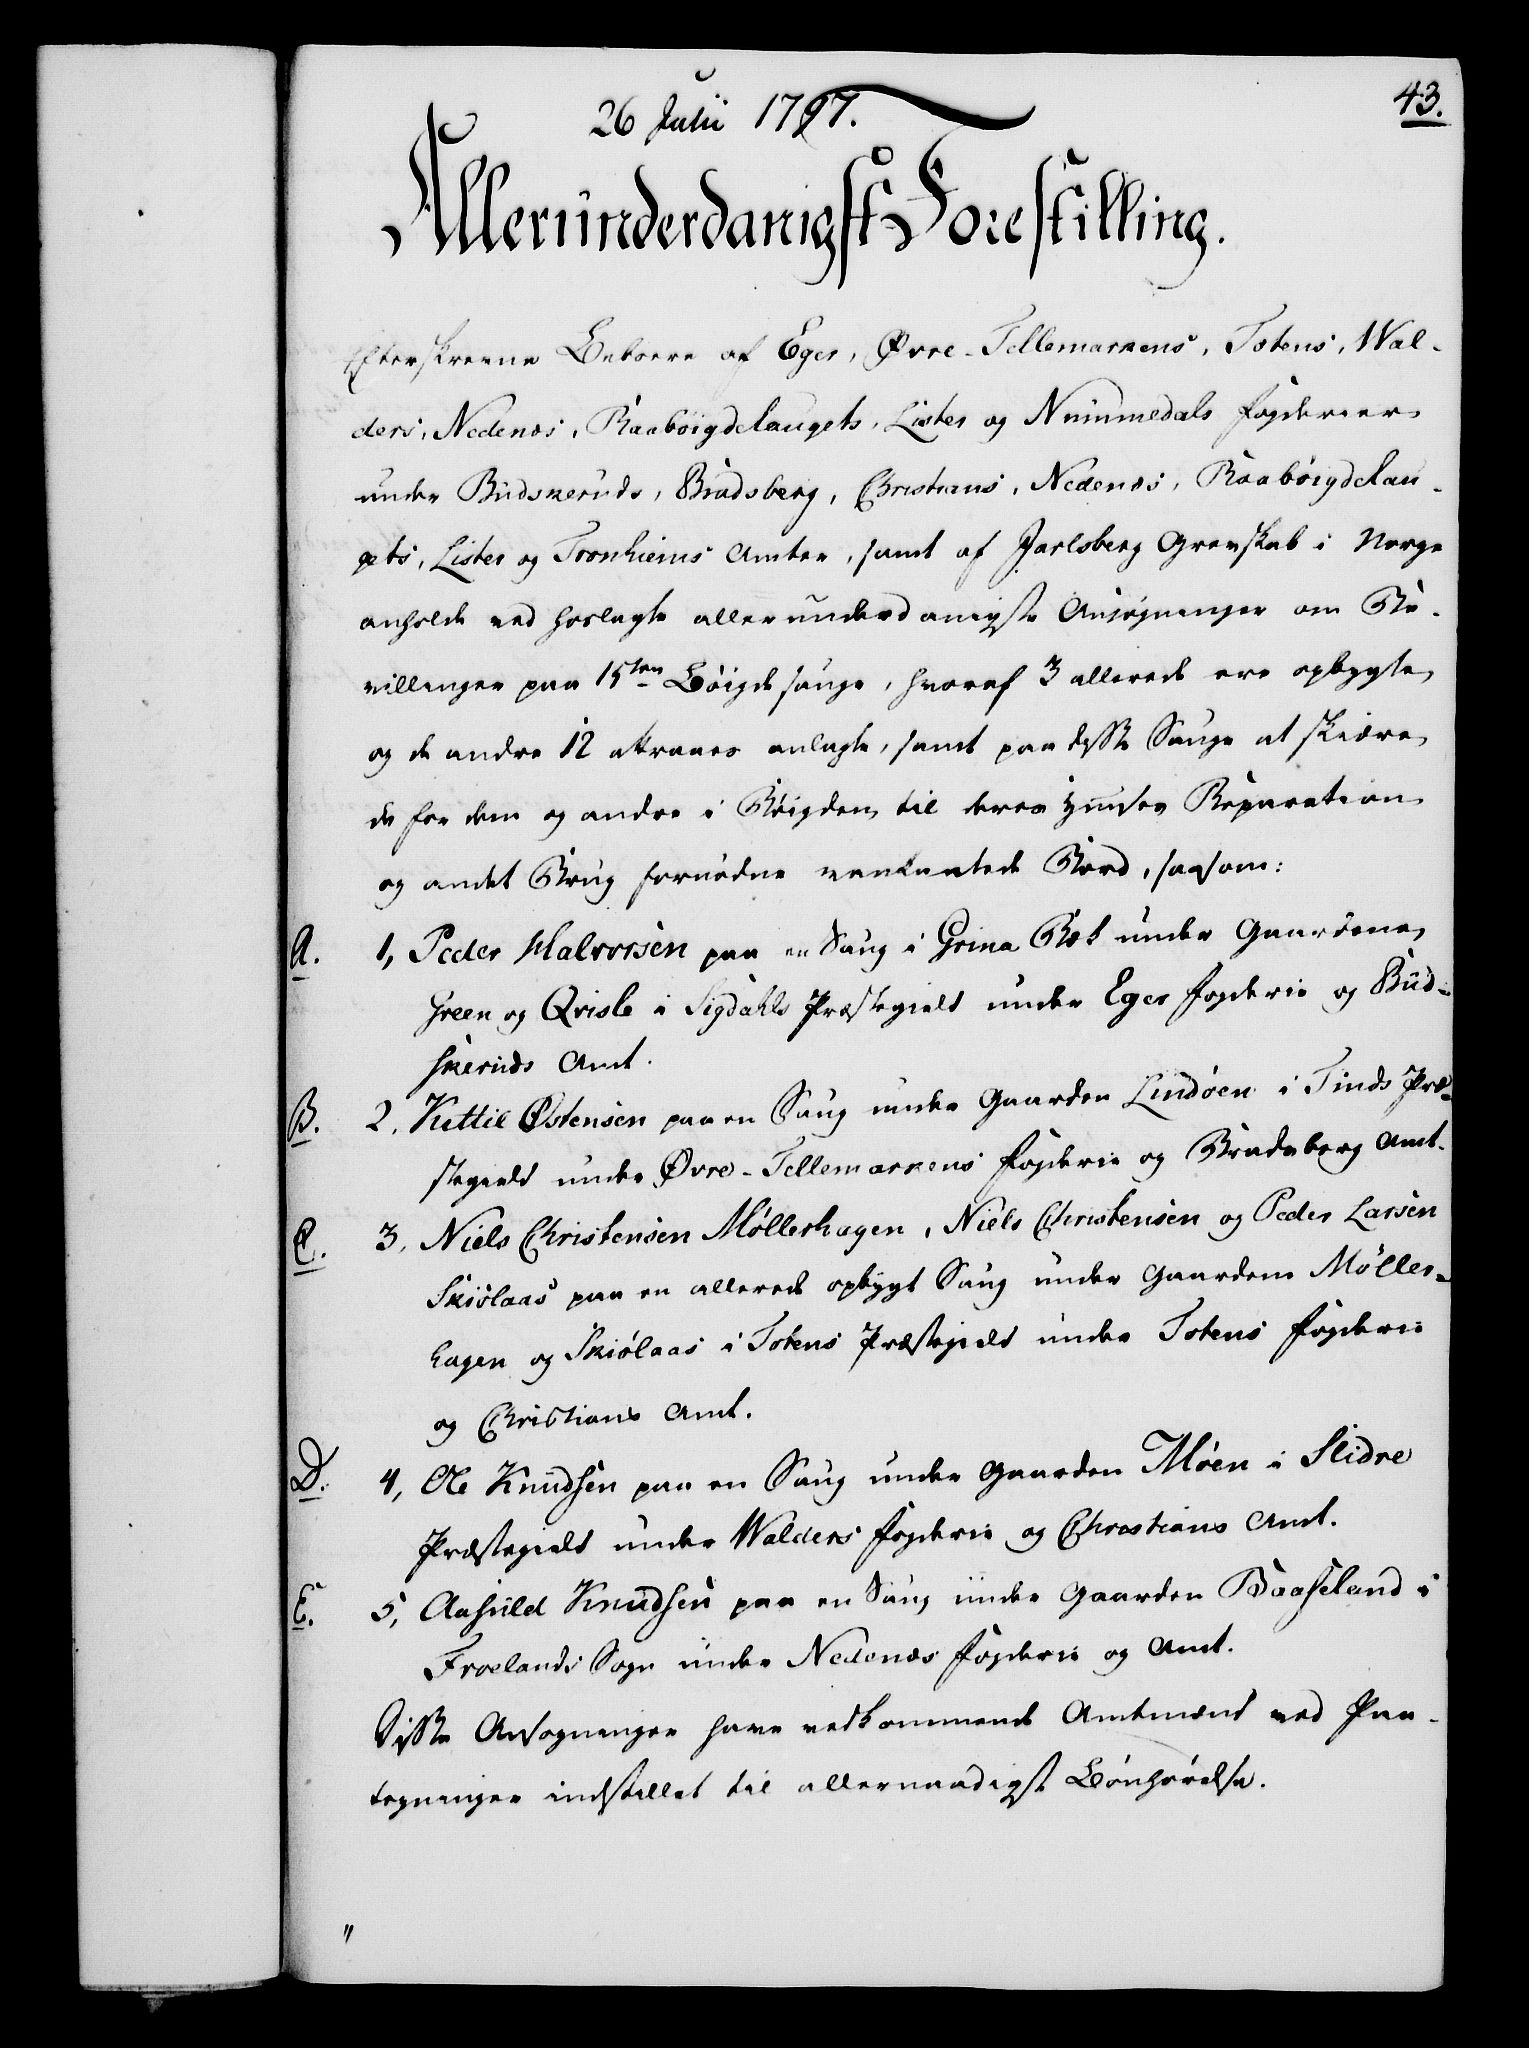 43.
26 Julii 1797.
Allerunderdanigst Forestilling.
Efterskrevne Beboere af Eger, Øvre-Tellemarkens, Totens, Wal-
ders, Nedenæs, Raabøigdelaugets, Lister og Nummedals Fogderier
under Budskeruds, Bradsberg, Christians, Nedenæs, Raabøigdelau-
gets, Lister og Tronhiems Amter, samt af Jarlsberg Grevskab i Norge
anholde ved hoslagte allerunderdanigste Ansøgninger om Be-
villinger paa 15ten Bøigdesauge, hvoraf 3 allerede ere opbygte,
og de andre 12 attraaes anlagte, samt paa disse Sauge at skiære
de for dem og andre i Bøigden til deres Huuses Reparation
og andet Brug fornødne vankantede Bord, saasom:
A. 1, Peder Halvorsen paa en Saug i Grima Bæk under Gaardene
Green og Qvisle i Sigdahls Præstegield under Eger Fogderie og Bud-
skeruds Amt.
B. 2. Kittil Østensen paa en Saug under Gaarden Lindøen i Tinds Præ-
stegield under Øvre-Tellemarkens Fogderie og Bradsberg Amt.
C. 3. Niels Christensen Møllerhagen, Niels Christensen og Peder Larsen
Skiølaas paa en allerede opbygt Saug under Gaardene Møller-
hagen og Skiølaas i Totens Præstegield under Totens Fogderie
og Christians Amt.
D. 4, Ole Knudsen paa en Saug under Gaarden Møen i Slidre
Præstegield under Walders Fogderie og Christians Amt.
E. 5, Aasuld Knudsen paa en Saug under Gaarden Baaseland i
Froelands Sogn under Nedenæs Fogderie og Amt.
Disse Ansøgninger have vedkommende Amtmænd ved Paa-
tegninger indstillet til allernaadigst Bønhørelse.
"